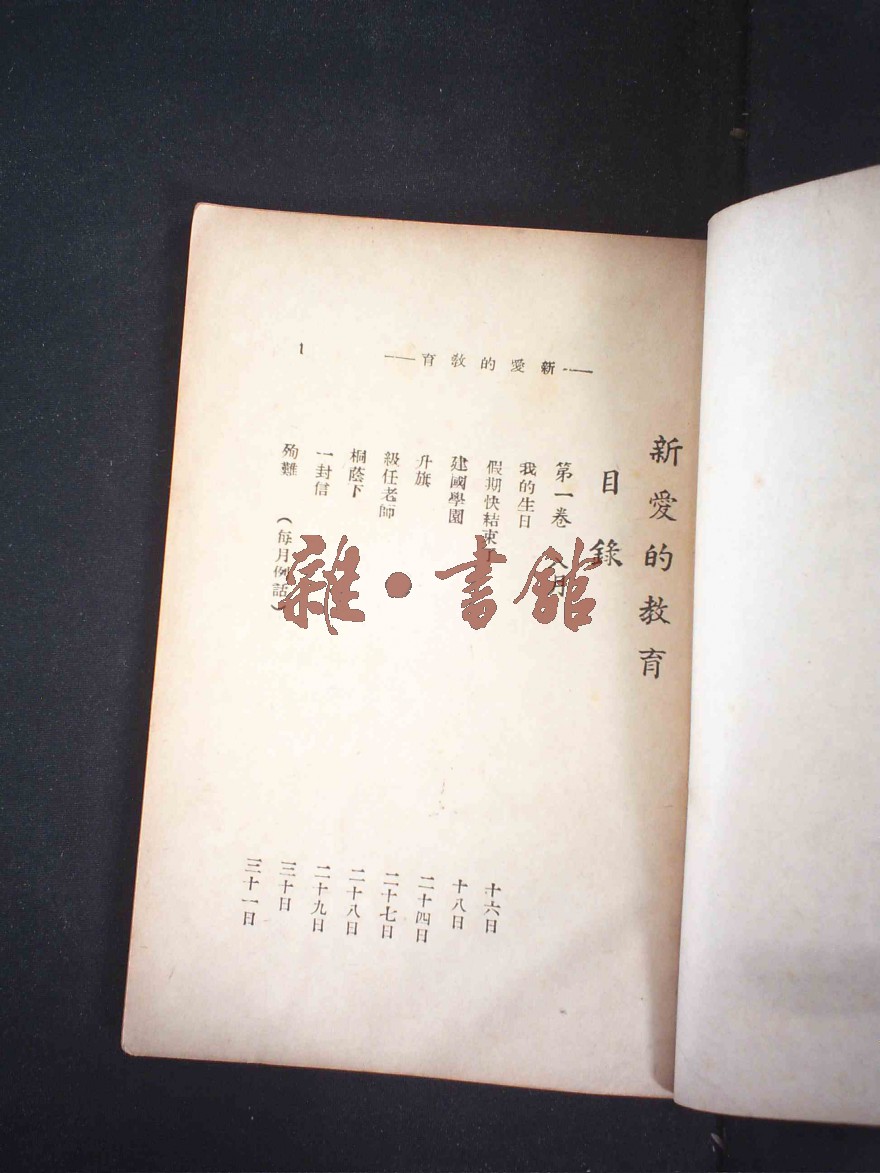 新愛的教育
目錄
第一卷 八月
我的生日 十六日
假期快結束了 十八日
建國學園 二十四日
升旗 二十七日
級任老師 二十八日
桐蔭下 二十九日
一封信 三十日
殉難 (每月例話) 三十一日
——新愛的教育——
1
雜·書館